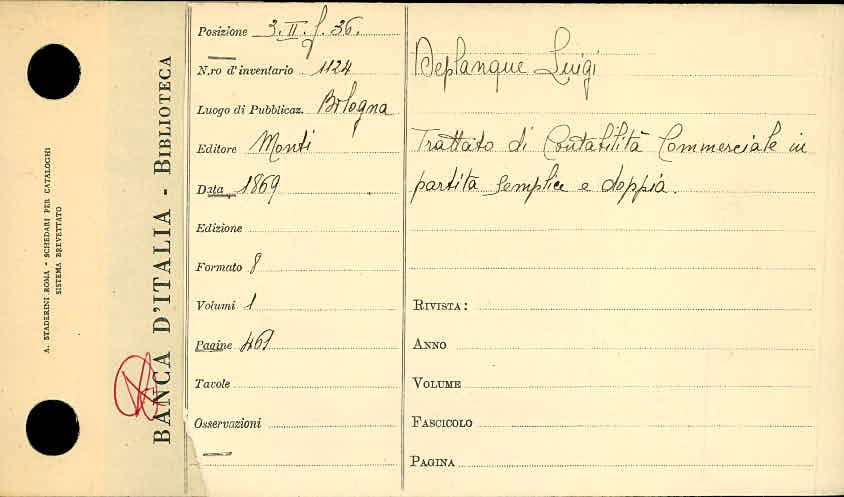 A. STADERINI ROMA - SCHEDARI PER CATALOGHI
SISTEMA BREVETTATO
BANCA D'ITALIA - BIBLIOTECA
Posizione 3. II. f. 36.
N.ro d'inventario 1124
Luogo di Pubblicaz. Bologna
Editore Monti
Data 1869
Edizione
Formato 8
Volumi 1
Pagine 461
Tavole
Osservazioni
Deplanque Luigi
Trattato di Contabilità Commerciale in
partita semplice e doppia.
RIVISTA:
ANNO
VOLUME
FASCICOLO
PAGINA